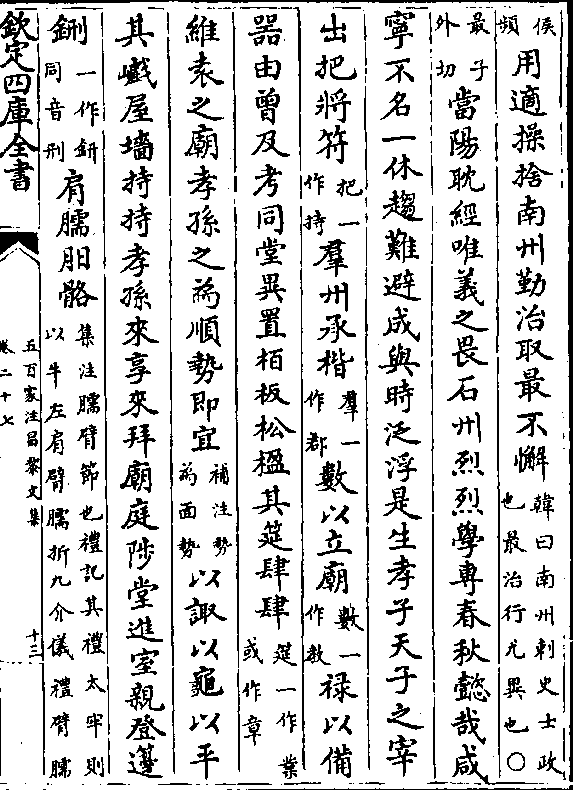 侯頻用適操捨南州勤治取最不懈韓曰南州刺史士政也最治行尤異也○
最子外切當陽耽經唯義之畏石州烈烈學專春秋懿哉咸
寧不名一休趨難避成與時泛浮是生孝子天子之宰
出把將符把一作持羣州承楷羣一作郡數以立廟數一作教祿以備
器由曾及考同堂異置栢板松楹其筵肆肆筵一作業或作章
維袁之廟孝孫之為順勢即宜補注勢為面勢以諏以龜以平
其巇屋墻持持孝孫來享來拜廟庭陟堂進室親登籩
鉶一作鈃同音刑肩臑胉骼集注臑臂節也禮記其禮太牢則以牛左肩臂臑折九介儀禮臂臑
欽定四庫全書
五百家注昌黎文集
卷二十七
十三